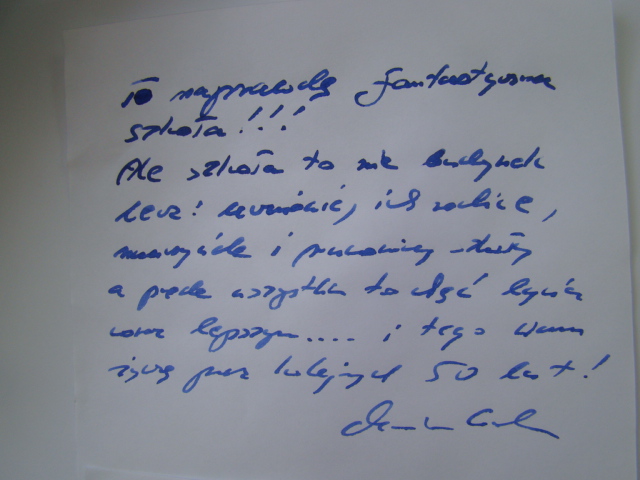 To naprawdę fantastyczna
szkoła!!!
Ale szkoła to nie budynek
lecz: uczniowie, ich rodzice,
nauczyciele i pracownicy szkoły
a przede wszystkim to chęć bycia
coraz lepszym.... i tego Wam
życzę przez kolejnych 50 lat!